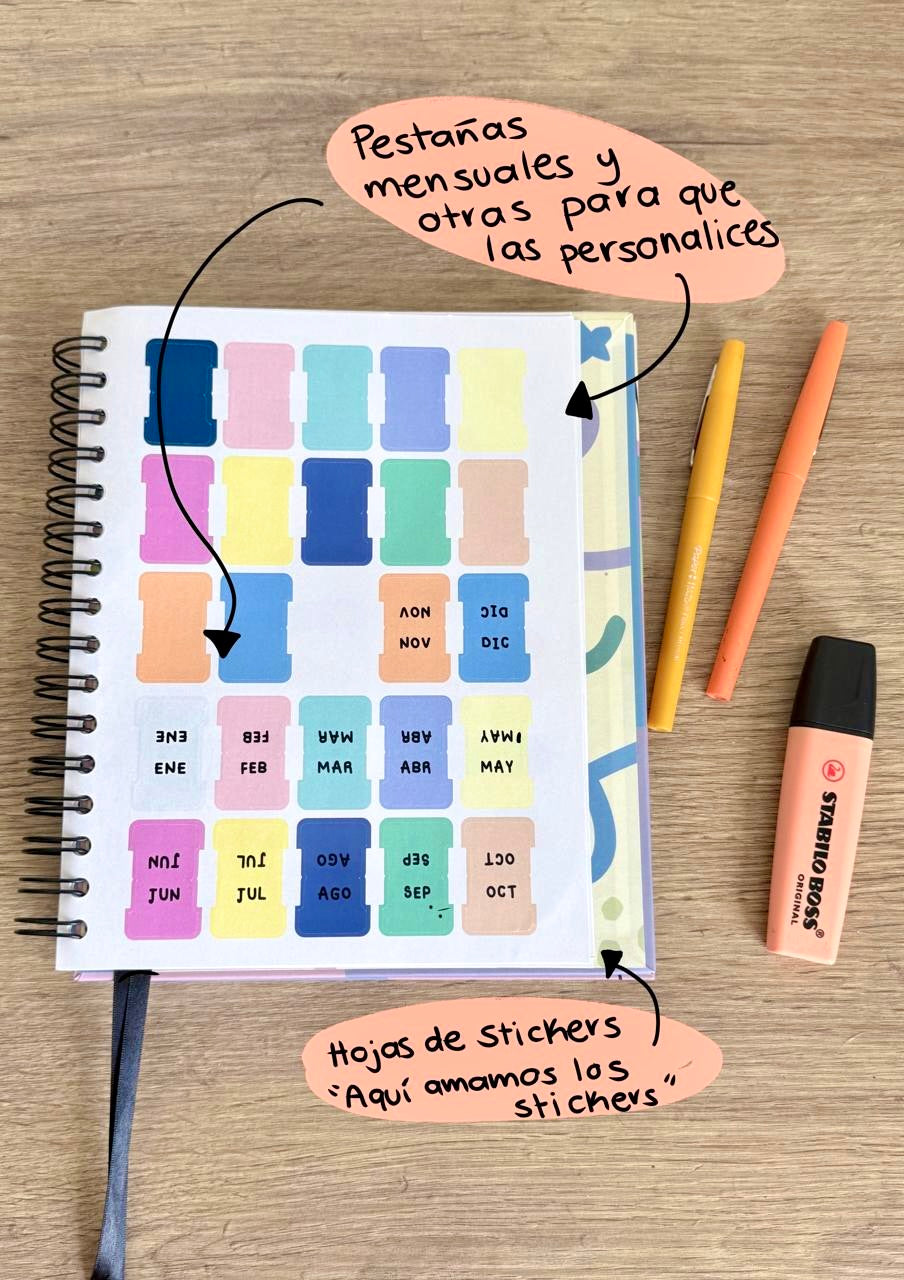 Pestañas
mensuales y
otras para que
las personalices
NOV DIC
NOV DIC
ENE FEB MAR ABR MAY
ENE FEB MAR ABR MAY
JUN JUL AGO SEP OCT
JUN JUL AGO SEP OCT
STABILO BOSS®
ORIGINAL
Hojas de stickers
"Aquí amamos los
stickers"